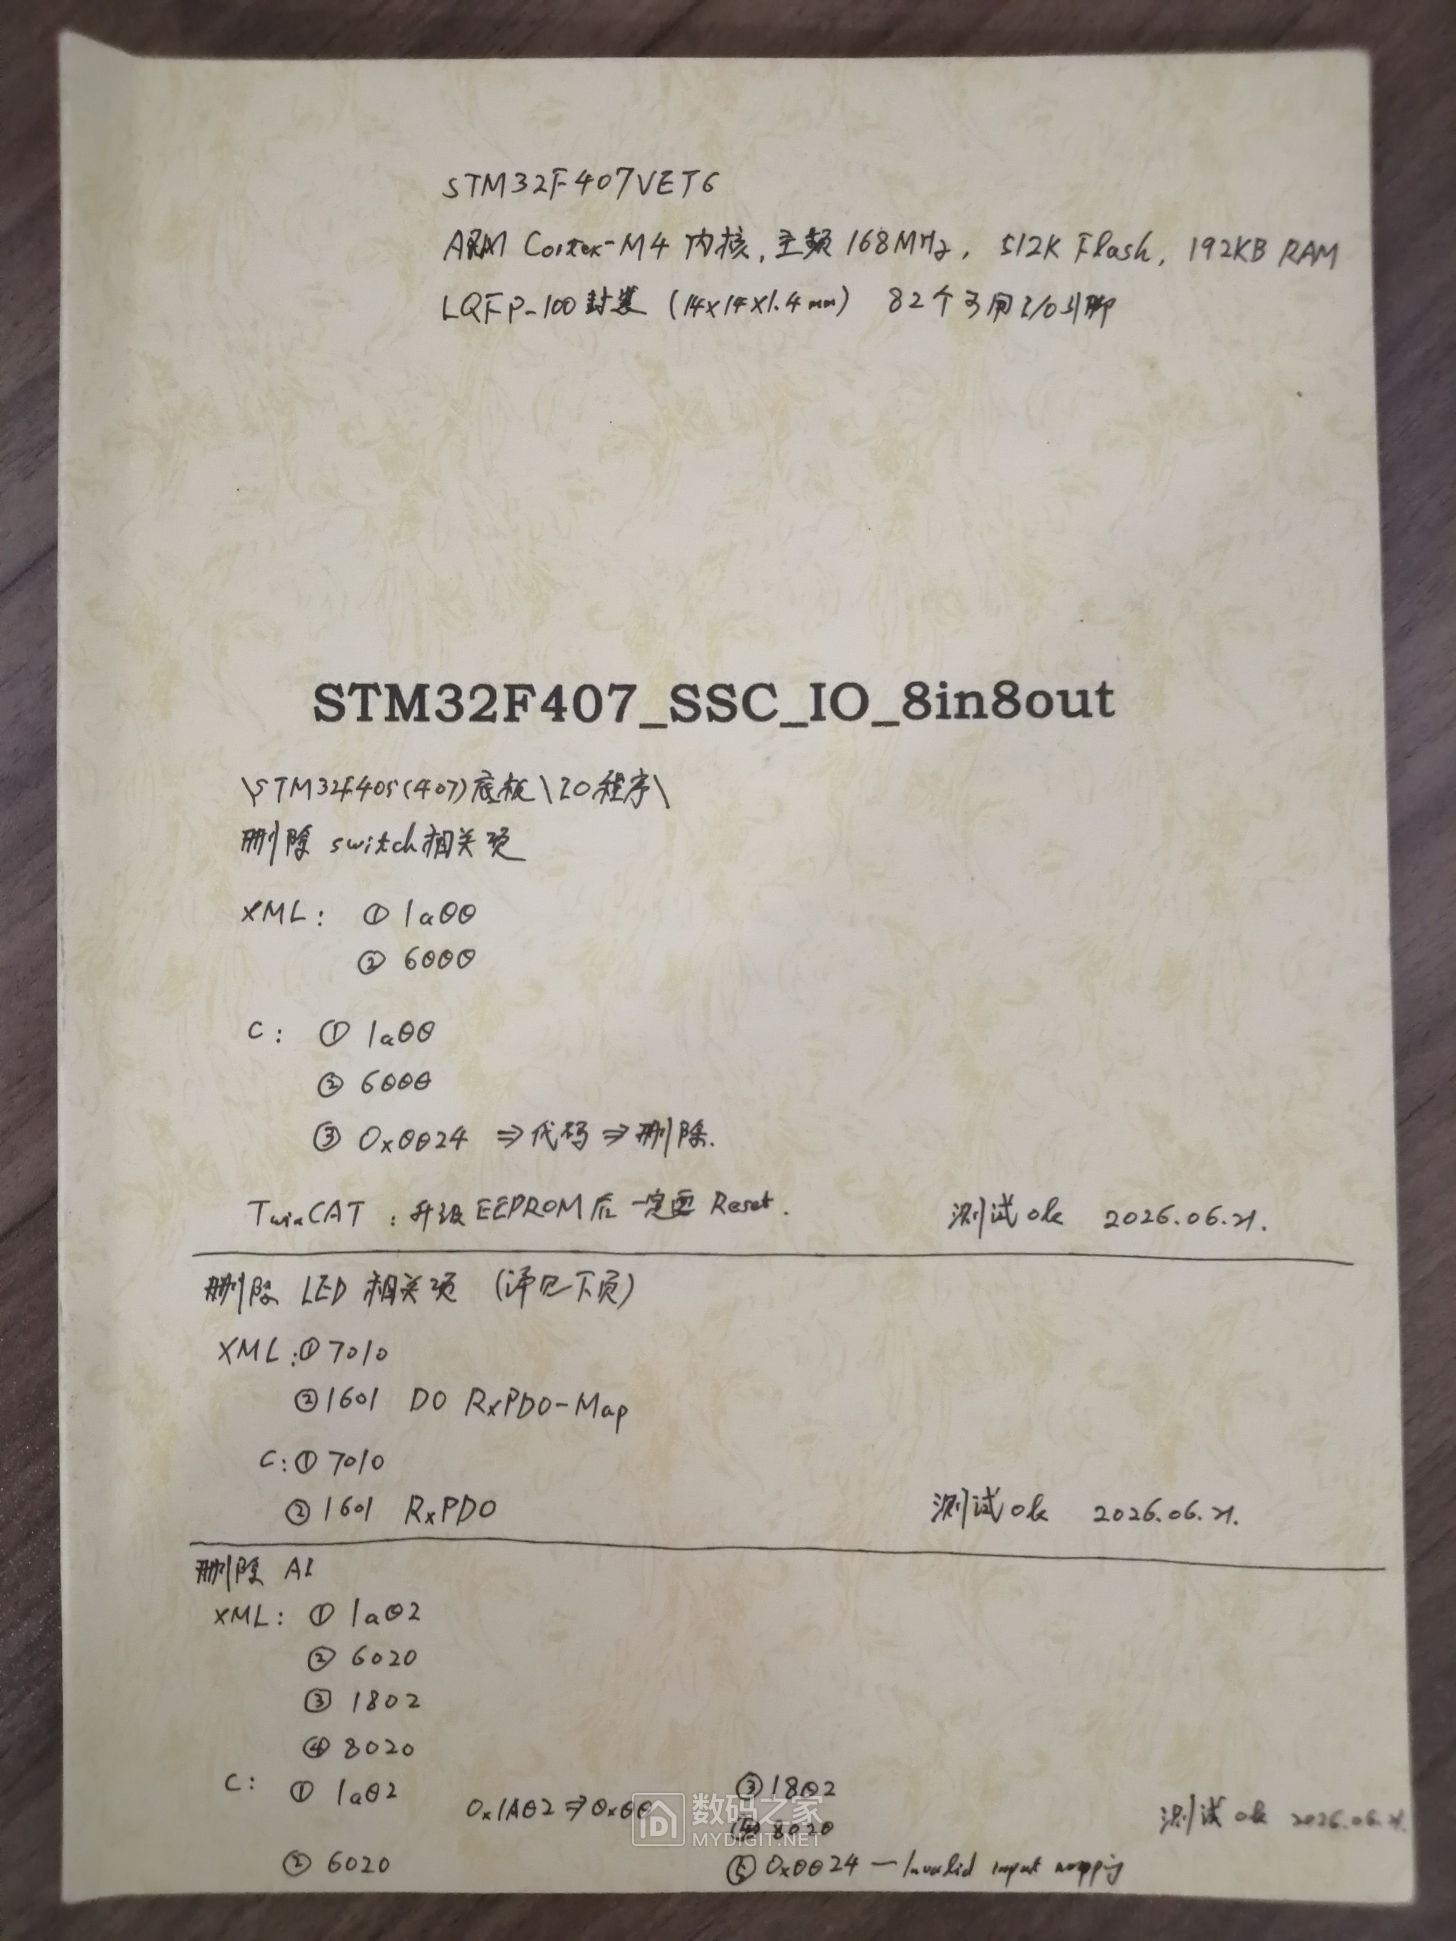 STM32F407VET6
ARM Cortex-M4 内核,主频 168MHz, 512K Flash, 192KB RAM
LQFP-100封装 (14x14x1.4mm) 82个可用I/O引脚
STM32F407_SSC_IO_8in8out
\STM32F405(407)底板\IO程序\
删除 switch相关项
XML: ① 1a00
② 6000
C: ① 1a00
② 6000
③ 0x0024 ⇒代码⇒删除.
TwinCAT : 升级EEPROM后一定要 Reset. 测试ok 2026.06.21.
删除 LED 相关项 (详见下页)
XML:①7010
②1601 DO RxPDO-Map
C:①7010
②1601 RxPDO 测试ok 2026.06.21.
删除 AI
XML: ① 1a02
② 6020
③ 1802
④ 8020
C: ① 1a02 0x1A02⇒0x00 ③1802
④ 8020 测试ok 2026.06.21.
② 6020 ⑤0x0024 — Invalid input mapping
数码之家
MYDIGIT.NET